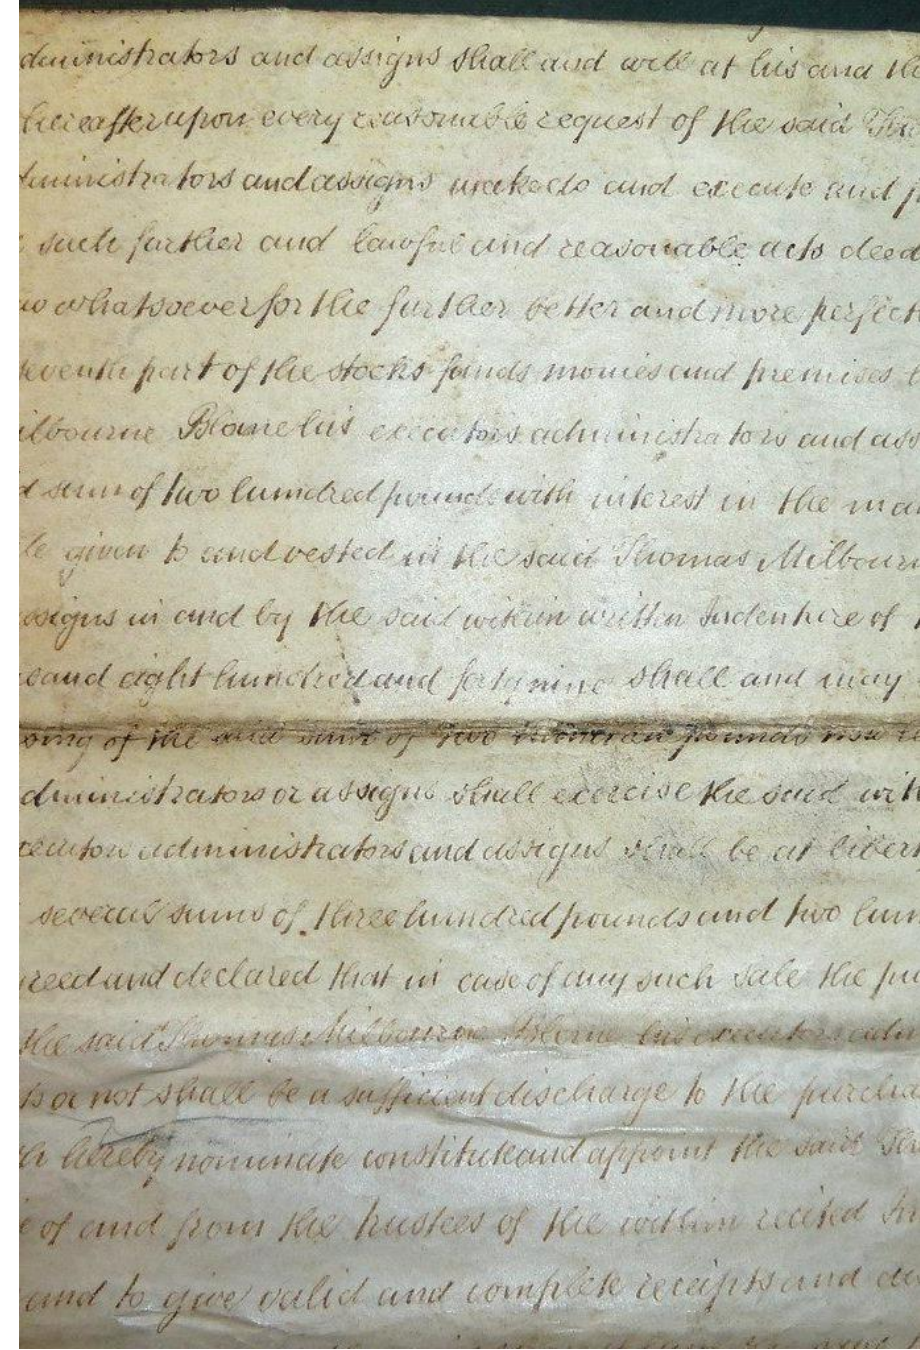 dministrators and assigns shall and will at his and the
hereafter upon every reasonable request of the said Tho
dministrators and assigns make do and execute and p
such further and lawful and reasonable acts deed
whatsoever for the further better and more perfect
seventh part of the stocks funds monies and premises
ilbourne Blane his executors administrators and ass
d sum of two hundred pounds with interest in the ma
given to and vested in the said Thomas Milbour
ssigns in and by the said within written Indenture of
sand eight hundred and forty nine shall and may
of the said sum of two hundred pounds now
dministrators or assigns shall exercise the said with
xecutors administrators and assigns shall be at libert
several sums of three hundred pounds and two hun
reed and declared that in case of any such sale the pu
the said Thomas Milbourne Blane his executors adm
ts or not shall be a sufficient discharge to the purcha
th hereby nominate constitute and appoint the said Tho
e of and from the trustees of the within recited In
and to give valid and complete receipts and